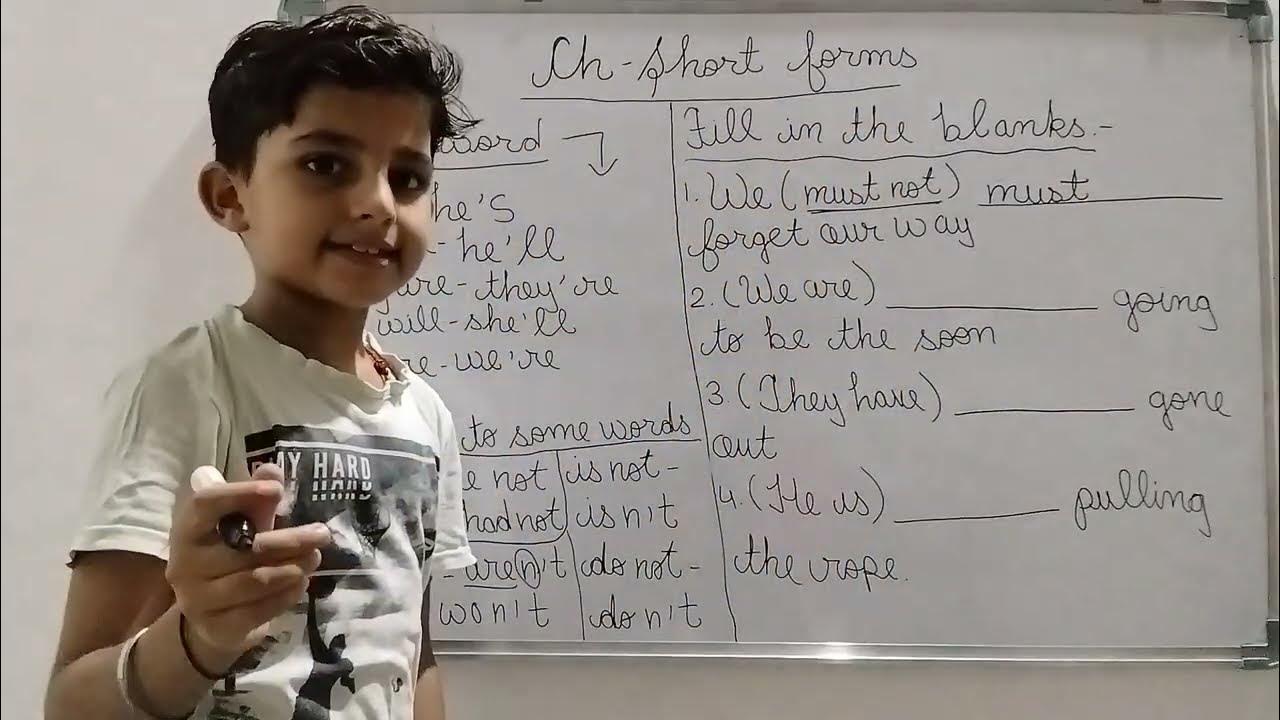 Ch - Short forms
word
he's
- he'll
are - they're
will - she'll
re - we're
to some words
e not
had not
- aren't
won't
is not -
isn't
do not -
don't
Fill in the blanks.-
1. We (must not) must
forget our way
2. (We are) going
to be the soon
3. (They have) gone
out
4. (He is) pulling
the rope.
MY HARD
HARD